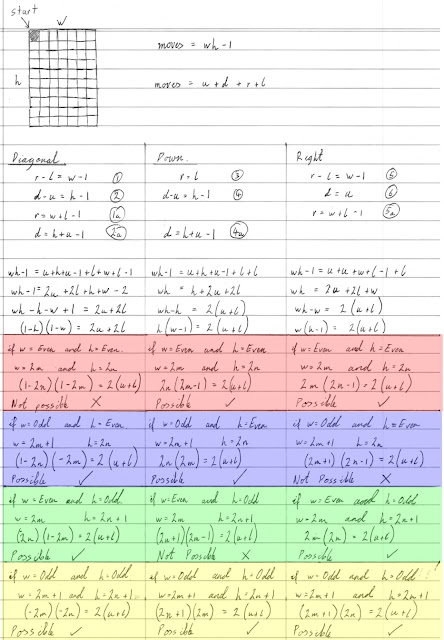 start
w
h
moves = wh-1
moves = u + d + r + l
Diagonal
r-l = w-1 ①
d-u = h-1 ②
r = w+l-1 (1a)
d = h+u-1 (2a)
wh-1 = u+h+u-1+l+w+l-1
wh-1 = 2u+2l+h+w-2
wh-h-w+1 = 2u+2l
(1-h)(1-w) = 2u+2l
Down
r=l ③
d-u = h-1 ④
d = h+u-1 (4a)
wh-1 = u+h+u-1+l+l
wh = h+2u+2l
wh-h = 2(u+l)
h(w-1) = 2(u+l)
Right
r-l = w-1 ⑤
d=u ⑥
r = w+l-1 (5a)
wh-1 = u+u+w+l-1+l
wh = 2u+2l+w
wh-w = 2(u+l)
w(h-1) = 2(u+l)
if w=Even and h=Even
w=2m and h=2n
(1-2n)(1-2m) = 2(u+l)
Not possible ✗
if w=Even and h=Even
w=2m and h=2n
2n(2m-1) = 2(u+l)
Possible ✓
if w=Even and h=Even
w=2m and h=2n
2m(2n-1) = 2(u+l)
Possible ✓
if w=Odd and h=Even
w=2m+1 h=2n
(1-2n)(-2m) = 2(u+l)
Possible ✓
if w=Odd and h=Even
w=2m+1 h=2n
2n(2m) = 2(u+l)
Possible ✓
if w=Odd and h=Even
w=2m+1 h=2n
(2m+1)(2n-1) = 2(u+l)
Not Possible ✗
if w=Even and h=Odd
w=2m h=2n+1
(2n)(1-2m) = 2(u+l)
Possible ✓
if w=Even and h=Odd
w=2m h=2n+1
(2n+1)(2m-1) = 2(u+l)
Not Possible ✗
if w=Even and h=Odd
w=2m and h=2n+1
2m(2n) = 2(u+l)
Possible ✓
if w=Odd and h=Odd
w=2m+1 and h=2n+1
(-2m)(-2n) = 2(u+l)
Possible ✓
if w=Odd and h=Odd
w=2m+1 and h=2n+1
(2n+1)(2m) = 2(u+l)
Possible ✓
if w=Odd and h=Odd
w=2m+1 and h=2n+1
(2m+1)(2n) = 2(u+l)
Possible ✓